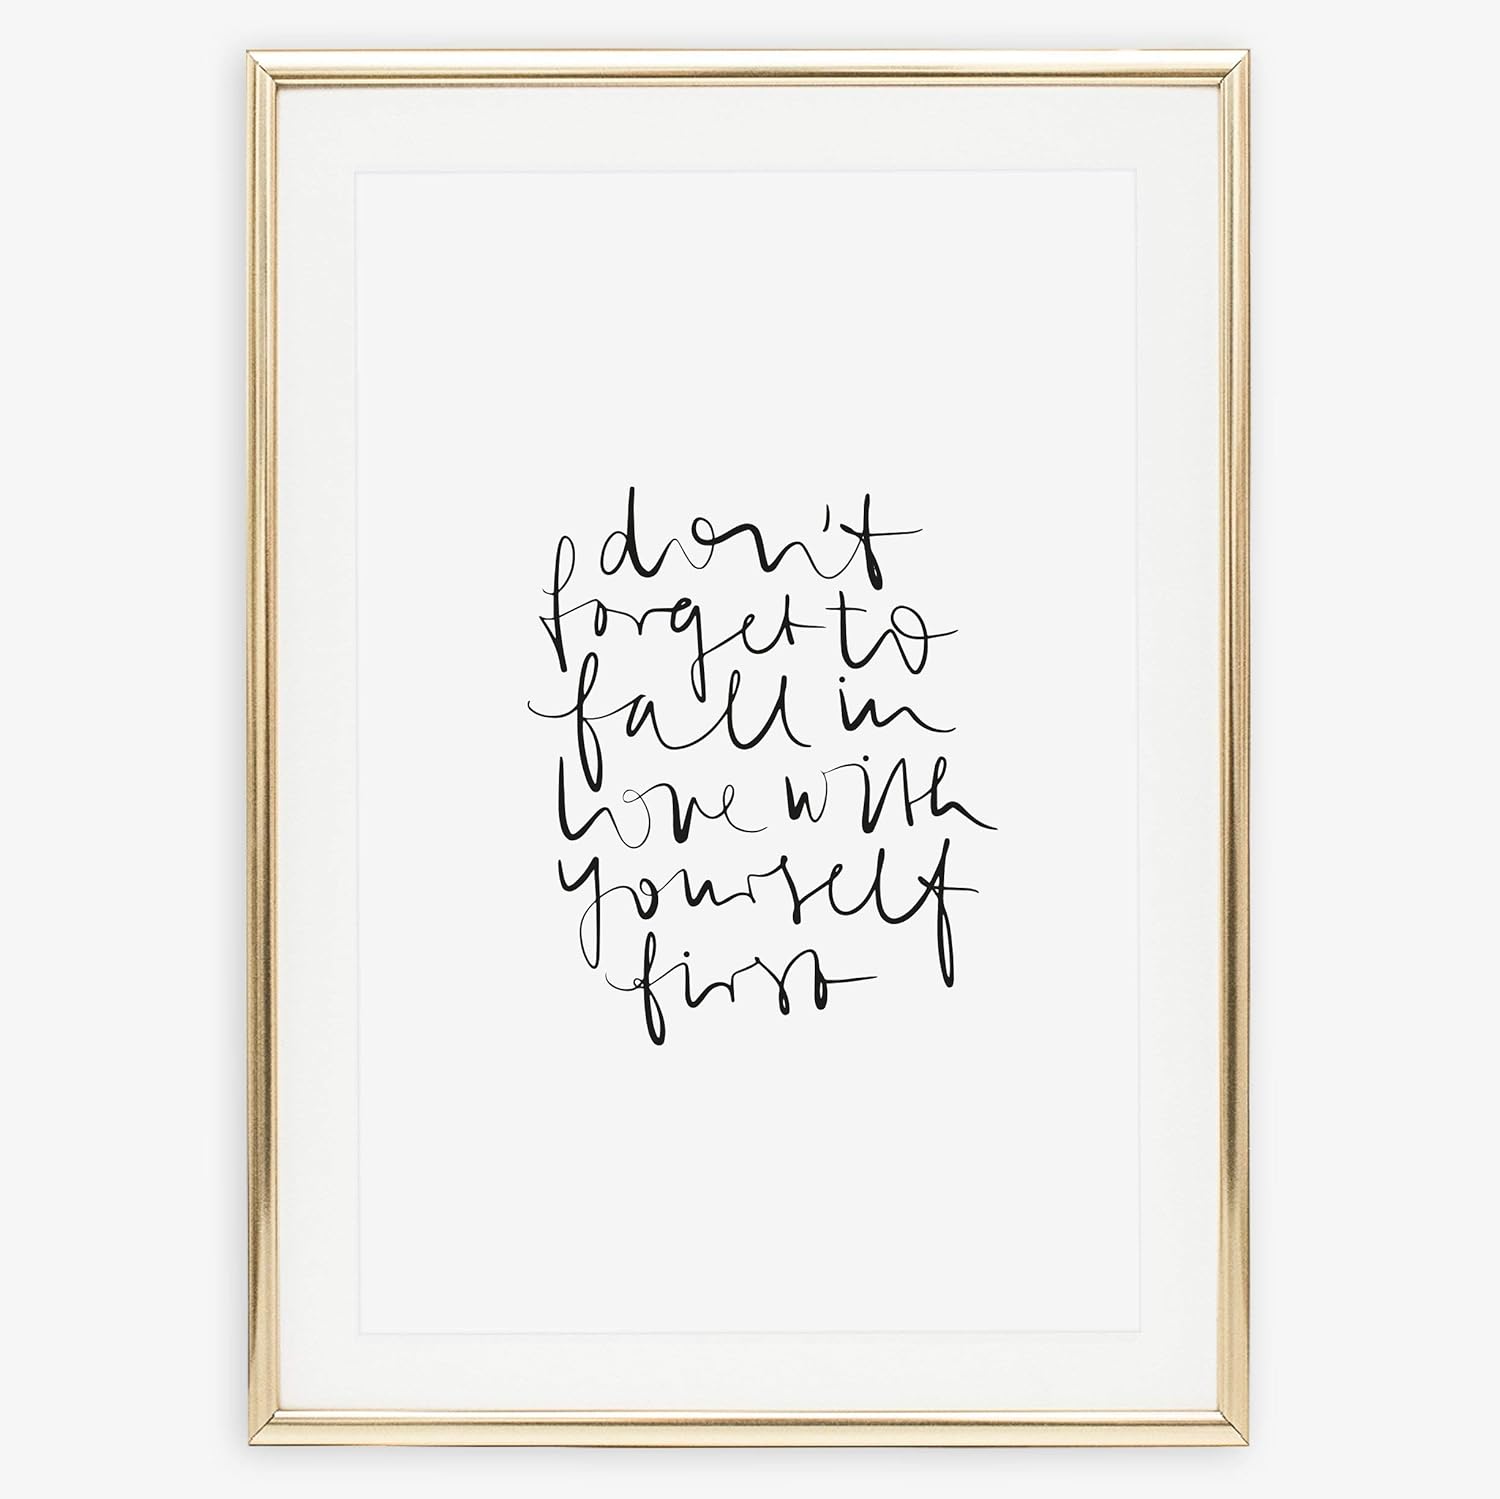 don't
forget to
fall in
love with
yourself
first